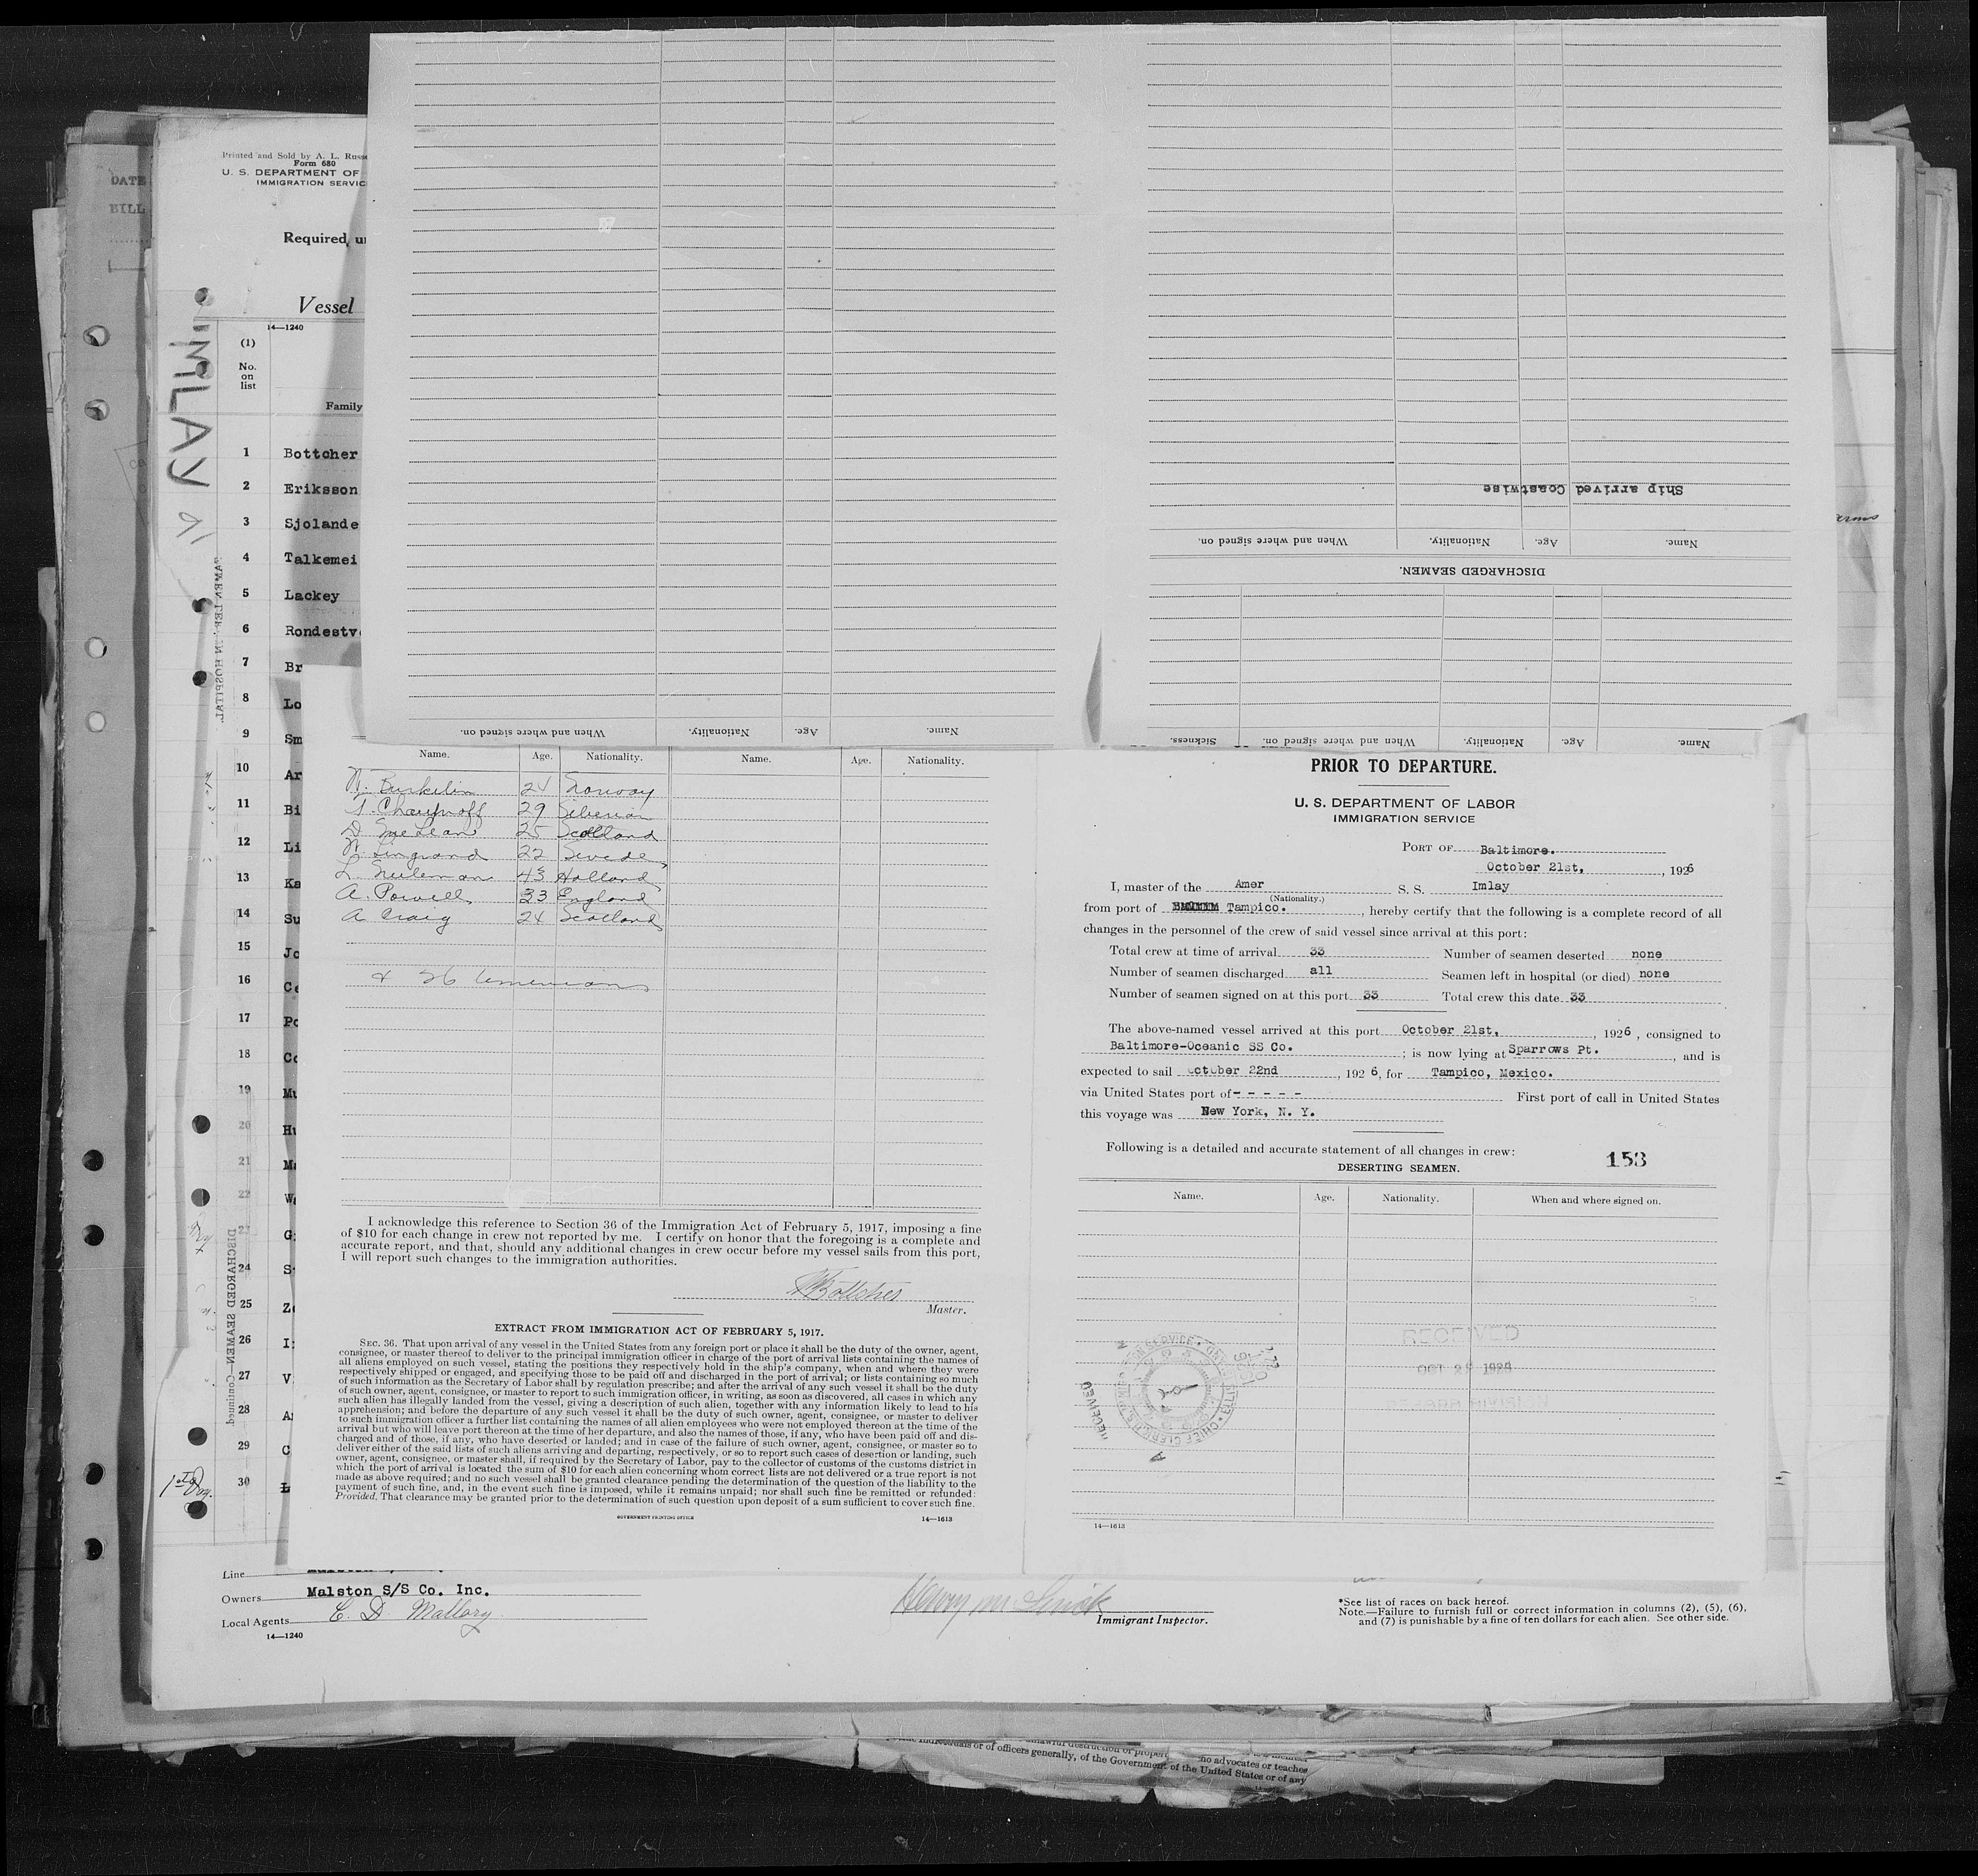 Printed and Sold by A. L. Russ
Form 680
U. S. DEPARTMENT OF
IMMIGRATION SERVIC
DATE
BILL
Required, u
Vessel
14—1240
IMLAY
(1)
No.
on
list
Family
1 Bottcher
2 Eriksson
3 Sjolande
4 Talkemei
5 Lackey
6 Rondestv
7 Br
8 Lo
9 Sm
10 Ar
11 Bi
12 Li
13 Ka
14 Su
15 Jo
16 Ce
17 Po
18 Co
19 Mu
20 Hu
21 Ma
22 Wa
23 G
24 S
25 Z
26 I
27 V
28 A
29 C
30 L
DISCHARGED SEAMEN—Continued.
Ship arrived Coastwise
Name. Age. Nationality. When and where signed on.
DISCHARGED SEAMEN.
Name. Age. Nationality. When and where signed on. Sickness.
Name. Age. Nationality. When and where signed on.
Name. Age. Nationality. Name. Age. Nationality.
24 Norway
29 Siberian
D McLean 25 Scotland
22 Sweden
43 Holland
A. Powell 33 England
A Craig 24 Scotland
& 26 Americans
I acknowledge this reference to Section 36 of the Immigration Act of February 5, 1917, imposing a fine
of $10 for each change in crew not reported by me. I certify on honor that the foregoing is a complete and
accurate report, and that, should any additional changes in crew occur before my vessel sails from this port,
I will report such changes to the immigration authorities.
Bottcher
Master.
EXTRACT FROM IMMIGRATION ACT OF FEBRUARY 5, 1917.
SEC. 36. That upon arrival of any vessel in the United States from any foreign port or place it shall be the duty of the owner, agent,
consignee, or master thereof to deliver to the principal immigration officer in charge of the port of arrival lists containing the names of
all aliens employed on such vessel, stating the positions they respectively hold in the ship's company, when and where they were
respectively shipped or engaged, and specifying those to be paid off and discharged in the port of arrival; or lists containing so much
of such information as the Secretary of Labor shall by regulation prescribe; and after the arrival of any such vessel it shall be the duty
of such owner, agent, consignee, or master to report to such immigration officer, in writing, as soon as discovered, all cases in which any
such alien has illegally landed from the vessel, giving a description of such alien, together with any information likely to lead to his
apprehension; and before the departure of any such vessel it shall be the duty of such owner, agent, consignee, or master to deliver
to such immigration officer a further list containing the names of all alien employees who were not employed thereon at the time of the
arrival but who will leave port thereon at the time of her departure, and also the names of those, if any, who have been paid off and dis-
charged and of those, if any, who have deserted or landed; and in case of the failure of such owner, agent, consignee, or master so to
deliver either of the said lists of such aliens arriving and departing, respectively, or so to report such cases of desertion or landing, such
owner, agent, consignee, or master shall, if required by the Secretary of Labor, pay to the collector of customs of the customs district in
which the port of arrival is located the sum of $10 for each alien concerning whom correct lists are not delivered or a true report is not
made as above required; and no such vessel shall be granted clearance pending the determination of the question of the liability to the
payment of such fine, and, in the event such fine is imposed, while it remains unpaid; nor shall such fine be remitted or refunded:
Provided, That clearance may be granted prior to the determination of such question upon deposit of a sum sufficient to cover such fine.
GOVERNMENT PRINTING OFFICE
14—1613
PRIOR TO DEPARTURE.
U. S. DEPARTMENT OF LABOR
IMMIGRATION SERVICE
PORT OF Baltimore.
October 21st, , 1926
I, master of the Amer S. S. Imlay
(Nationality.)
from port of Tampico. , hereby certify that the following is a complete record of all
changes in the personnel of the crew of said vessel since arrival at this port:
Total crew at time of arrival 33 Number of seamen deserted none
Number of seamen discharged all Seamen left in hospital (or died) none
Number of seamen signed on at this port 33 Total crew this date 33
The above-named vessel arrived at this port October 21st, , 1926, consigned to
Baltimore-Oceanic SS Co. ; is now lying at Sparrows Pt. , and is
expected to sail october 22nd , 1926, for Tampico, Mexico.
via United States port of - - - - - First port of call in United States
this voyage was New York, N. Y.
Following is a detailed and accurate statement of all changes in crew:
153
DESERTING SEAMEN.
Name. Age. Nationality. When and where signed on.
RECEIVED
RECEIVED
14—1613
1st Dog.
Line
Owners Malston S/S Co. Inc.
Local Agents C. D Mallory
14—1240
Immigrant Inspector.
*See list of races on back hereof.
Note.—Failure to furnish full or correct information in columns (2), (5), (6),
and (7) is punishable by a fine of ten dollars for each alien. See other side.
no advocates or teaches
or of officers generally, of the Government of the United States or of any